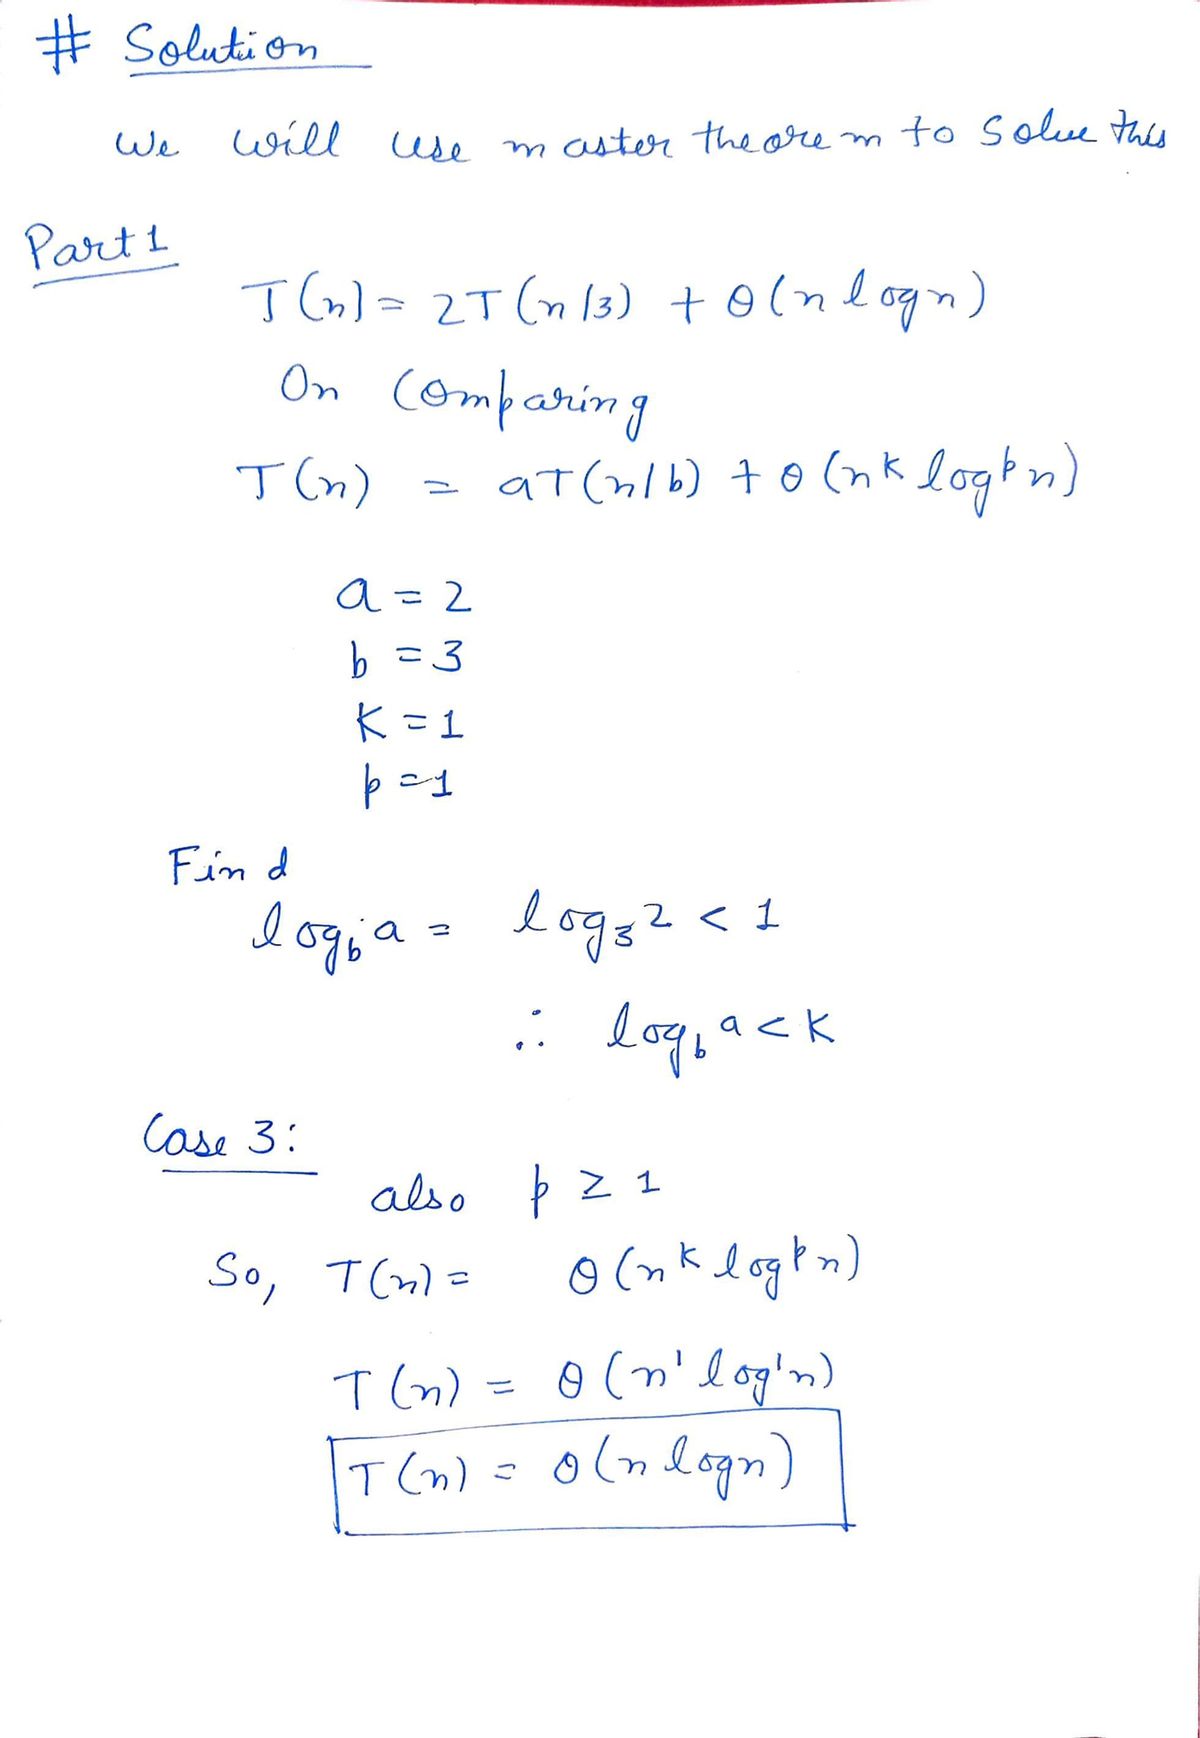 # Solution
We will use master theorem to solve this
Part 1
T(n) = 2T(n/3) + θ(n log n)
On Comparing
T(n) = aT(n/b) + θ(n^k log^p n)
a = 2
b = 3
K = 1
p = 1
Find
log_b a = log_3 2 < 1
∴ log_b a < K
Case 3:
also p ≥ 1
So, T(n) = θ(n^k log^p n)
T(n) = θ(n^1 log^1 n)
T(n) = θ(n log n)